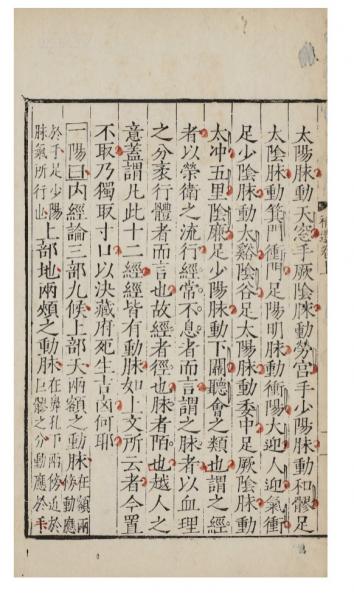 太陽脉動天窓手厥陰脉動勞宮手少陽脉動和髎足
太陰脉動箕門衝門足陽明脉動衝陽大迎人迎氣衝
足少陰脉動太谿陰谷足太陽脉動委中足厥陰脉動
太冲五里陰廉足少陽脉動下關聽會之類也謂之經
者以榮衛之流行經常不息者而言謂之脉者以血理
之分袤行體者而言也故經者徑也脉者陌也越人之
意蓋謂凡此十二經經皆有動脉如上文所云者今置
不取乃獨取寸口以決藏府死生吉凶何耶
一陽曰内經論三部九候上部天兩額之動脉在額兩傍動應
於手足少陽脉氣所行也上部地兩頰之動脉在鼻孔下兩傍近於巨髎之分動應於手